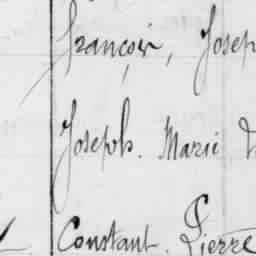 françois, Josep
Joseph. Marie
Constant. Pierre